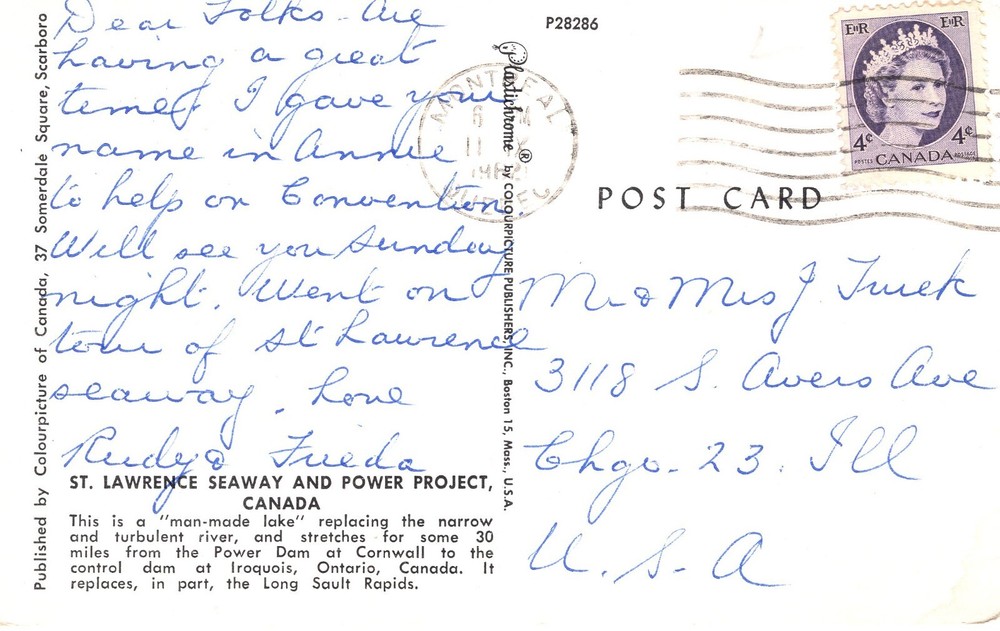 Dear Folks - Are
having a great
time! I gave your
name in Annie
to help on Convention.
Will see you Sunday
night. Went on
tour of St Lawrence
seaway. Love
Rudy & Frieda
ST. LAWRENCE SEAWAY AND POWER PROJECT,
CANADA
This is a "man-made lake" replacing the narrow
and turbulent river, and stretches for some 30
miles from the Power Dam at Cornwall to the
control dam at Iroquois, Ontario, Canada. It
replaces, in part, the Long Sault Rapids.
Published by Colourpicture of Canada, 37 Somerdale Square, Scarboro
P28286
Plastichrome ® by COLOURPICTURE PUBLISHERS, INC., Boston 15, Mass., U.S.A.
MONTREAL
QUEBEC
EIIR EIIR
4¢ 4¢
POSTES CANADA POSTAGE
POST CARD
Mr & Mrs J
3118 S. Avers Ave
Chgo. 23. Ill
U. S. A